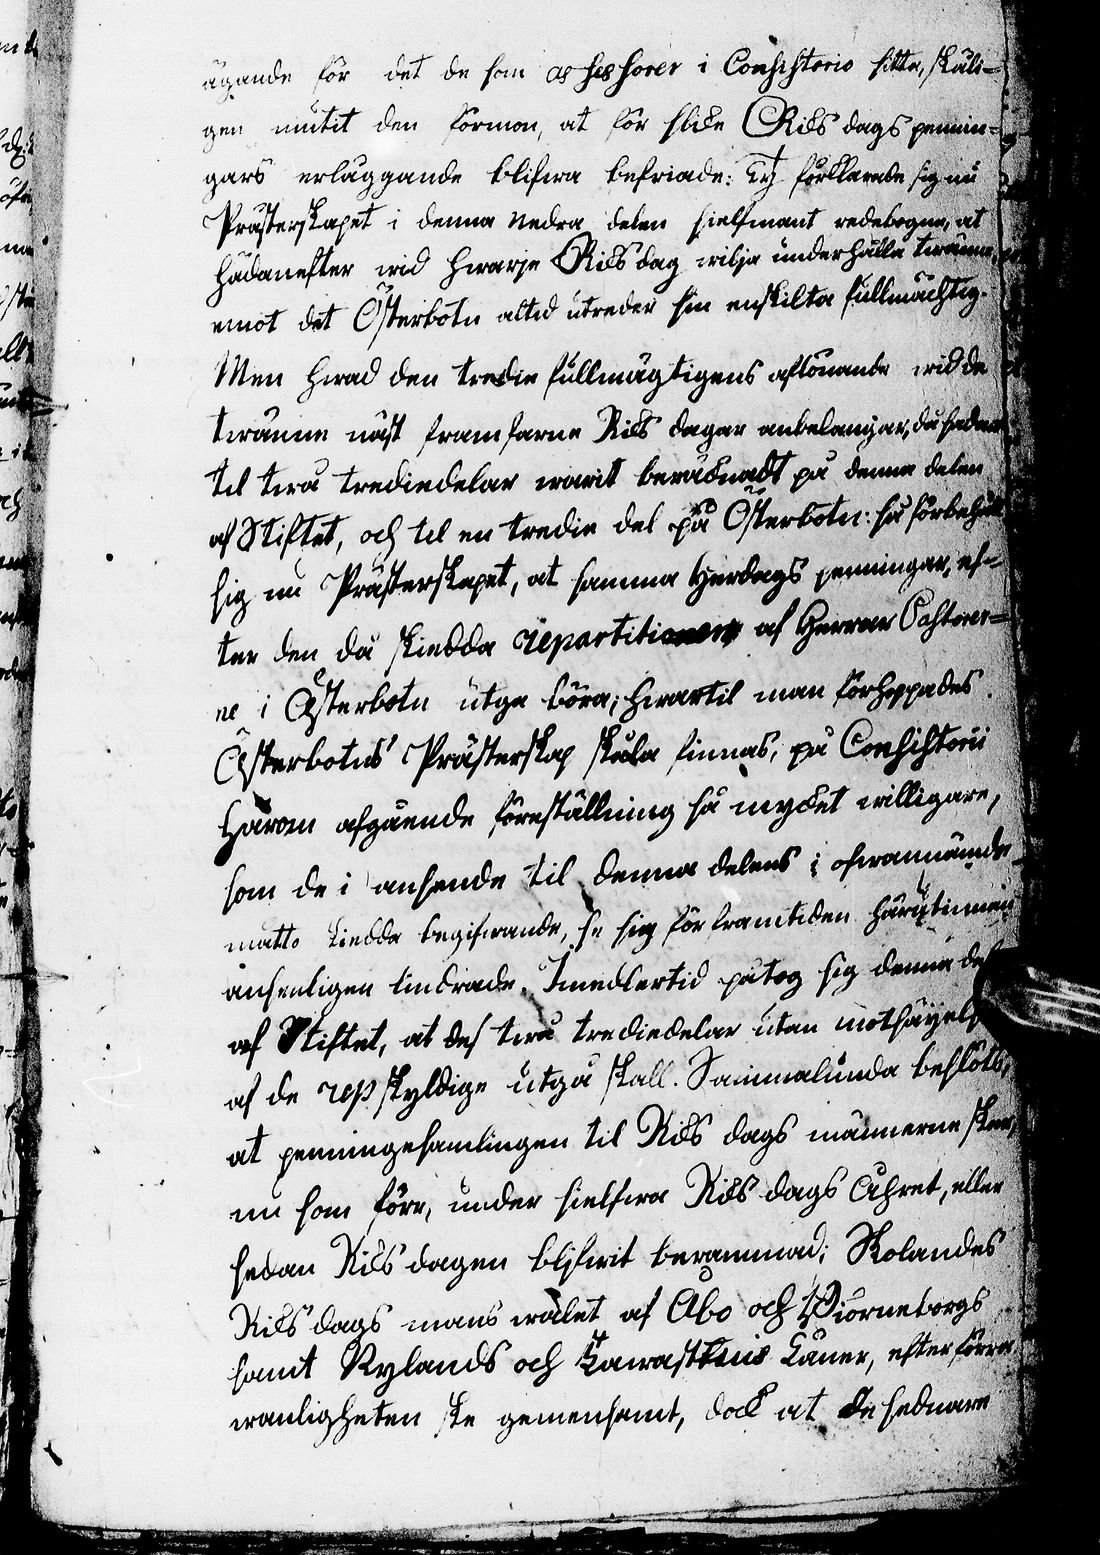 ägande för det de som assessorer i Consistorio sitta, skäli-
gen nutit den förmon, at för slike Riksdagspennin-
gars erläggande blifwa befriade: Ty förklarade sig nu
Prästerskapet i denna Nedra delen sielfmant redebogne, at
hädanefter wid hwarje Riksdag wilja underhålla twänne,
emot det Österbotn altid utreder sin enskilta fullmächtig.
Men hwad den tredie fullmägtigens aflönande wid de
twänne näst framfarne Riksdagar anbelangar, då
til twå trediedelar warit beräcknadt på denna delen
af Stiftet, och til en tredie del på Österbotn: så förbehölt
sig nu Prästerskapet, at samma Herdags penningar, ef-
ter den då skiedda repartitionen af Herrar Pastorer-
ne i Österbotn utgå böra; hwartil man förhoppades
Österbotns Prästerskap skola finnas, på Consistorii
härom afgående föreställning så mycket willigare,
som de i anseende til denna delens i ofwannämde
matto skiedda begifwande, se sig för framtiden härutinnan
ansenligen lindrade. Imedlertid påtog sig denna del
af Stiftet, at des twå trediedelar utan motsäyelse
af de resp skyldige utgå skall. Sammalunda beslöts,
at penningesamlingen til Riksdagsmännerne sker,
nu som förr, under sielfwa Riksdags Åhret, eller
sedan Riksdagen blifwit berammad; Skolandes
Riksdagsmans walet af Åbo och Biörneborgs
samt Nylands och Tawastehus Läner, efter förra
wanligheten ske gemensamt, dock at de sednare